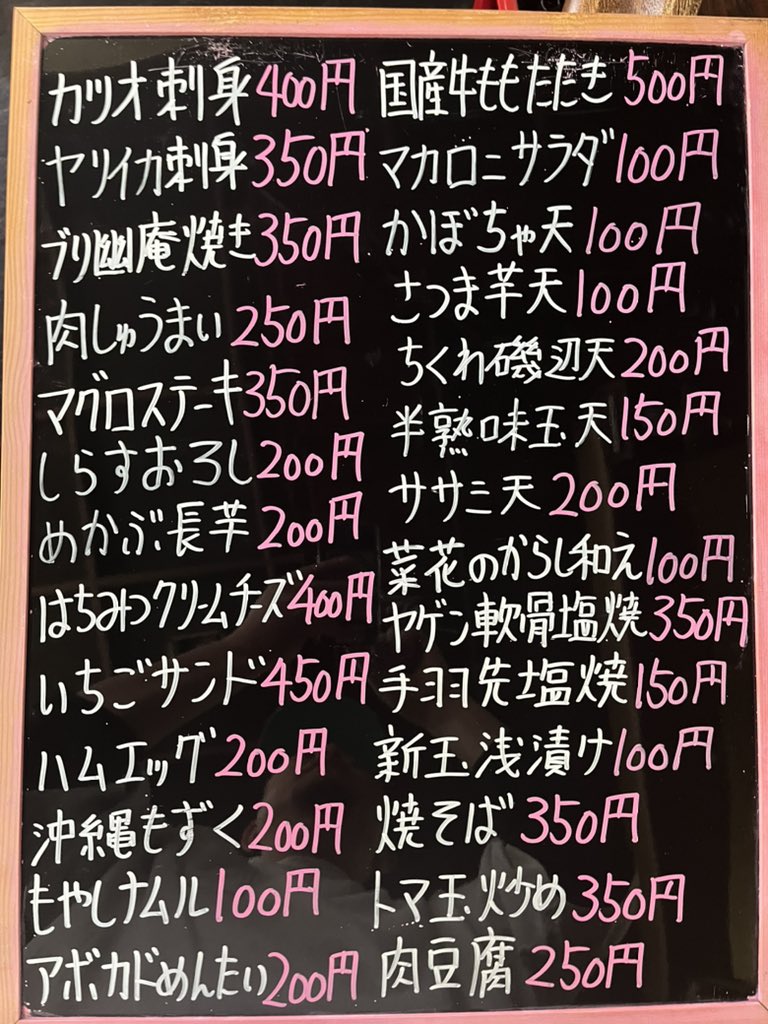 カツオ刺身400円
ヤリイカ刺身350円
ブリ幽庵焼き350円
肉しゅうまい250円
マグロステーキ350円
しらすおろし200円
めかぶ長芋200円
はちみつクリームチーズ400円
いちごサンド450円
ハムエッグ200円
沖縄もずく200円
もやしナムル100円
アボカドめんたい200円
国産牛ももたたき500円
マカロニサラダ100円
かぼちゃ天100円
さつま芋天100円
ちくわ磯辺天200円
半熟味玉天150円
ササミ天200円
菜花のからし和え100円
ヤゲン軟骨塩焼350円
手羽先塩焼150円
新玉浅漬け100円
焼そば350円
トマ玉炒め350円
肉豆腐250円